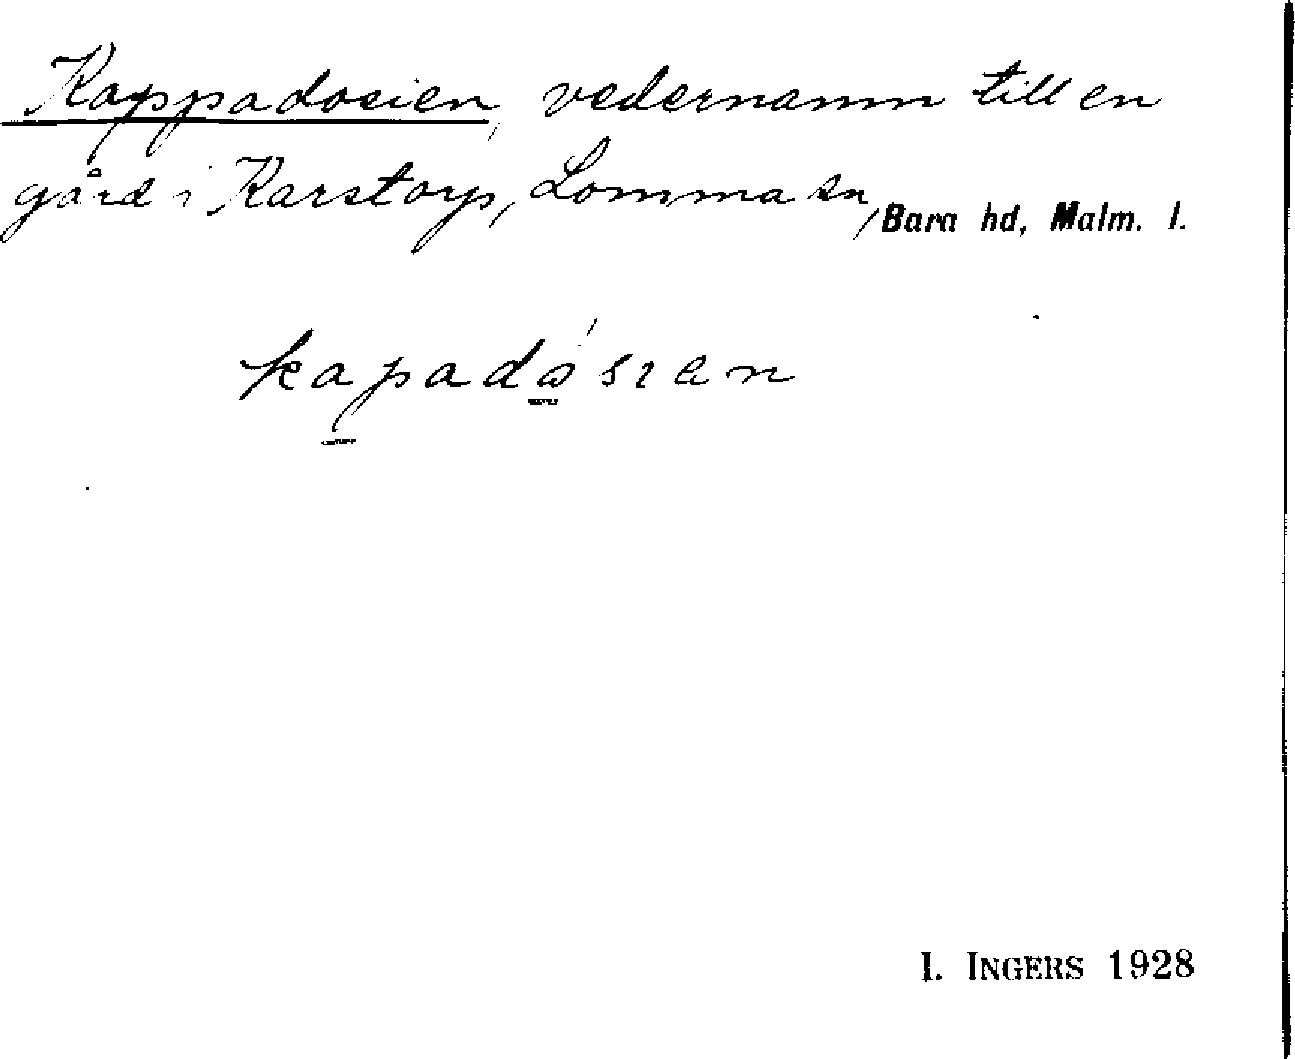 Kappadosien, vedernamn till en
gård i Karstorp, Lomma sn, Bara hd, Malm. l.
kapadå´sıan
I. INGERS 1928